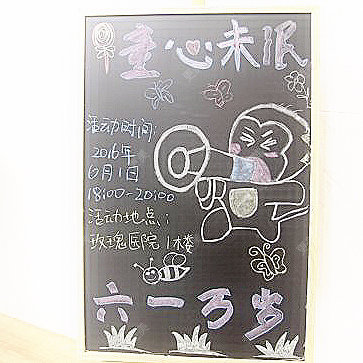 童心未泯
活动时间:
2016年
6月1日
18:00-20:00
活动地点:
玫瑰医院1楼
六一万岁